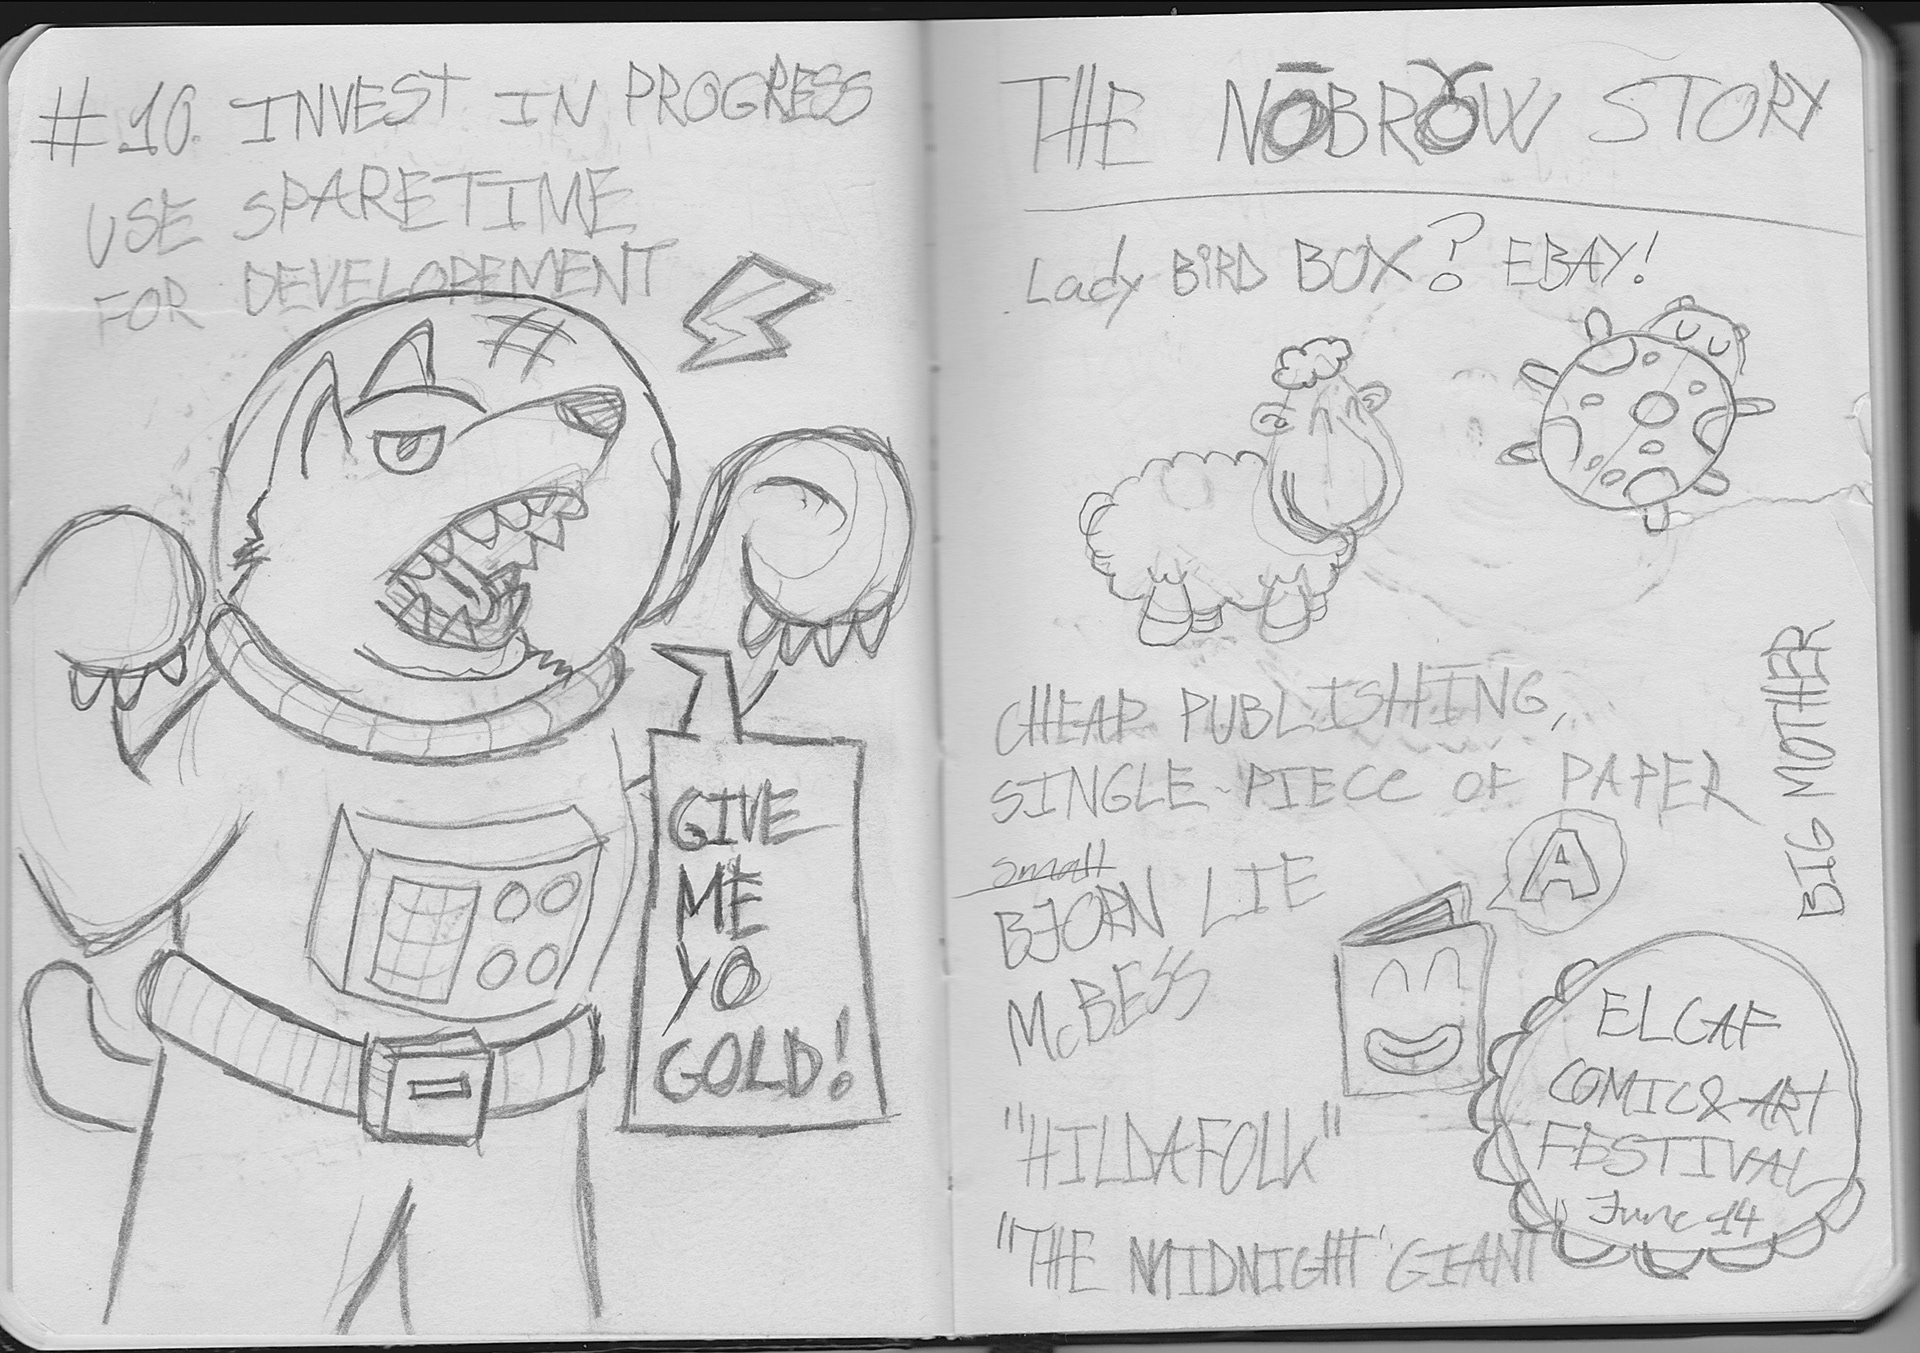 #10. INVEST IN PROGRESS
USE SPARETIME
FOR DEVELOPEMENT
GIVE
ME
YO
GOLD!
THE NOBROW STORY
Lady BIRD BOX? EBAY!
CHEAP PUBLISHING,
SINGLE PIECE OF PAPER
small
BJORN LIE
McBESS
"HILDAFOLK"
"THE MIDNIGHT GIANT
A
BIG MOTHER
ELCAF
COMIC & ART
FESTIVAL
June 14